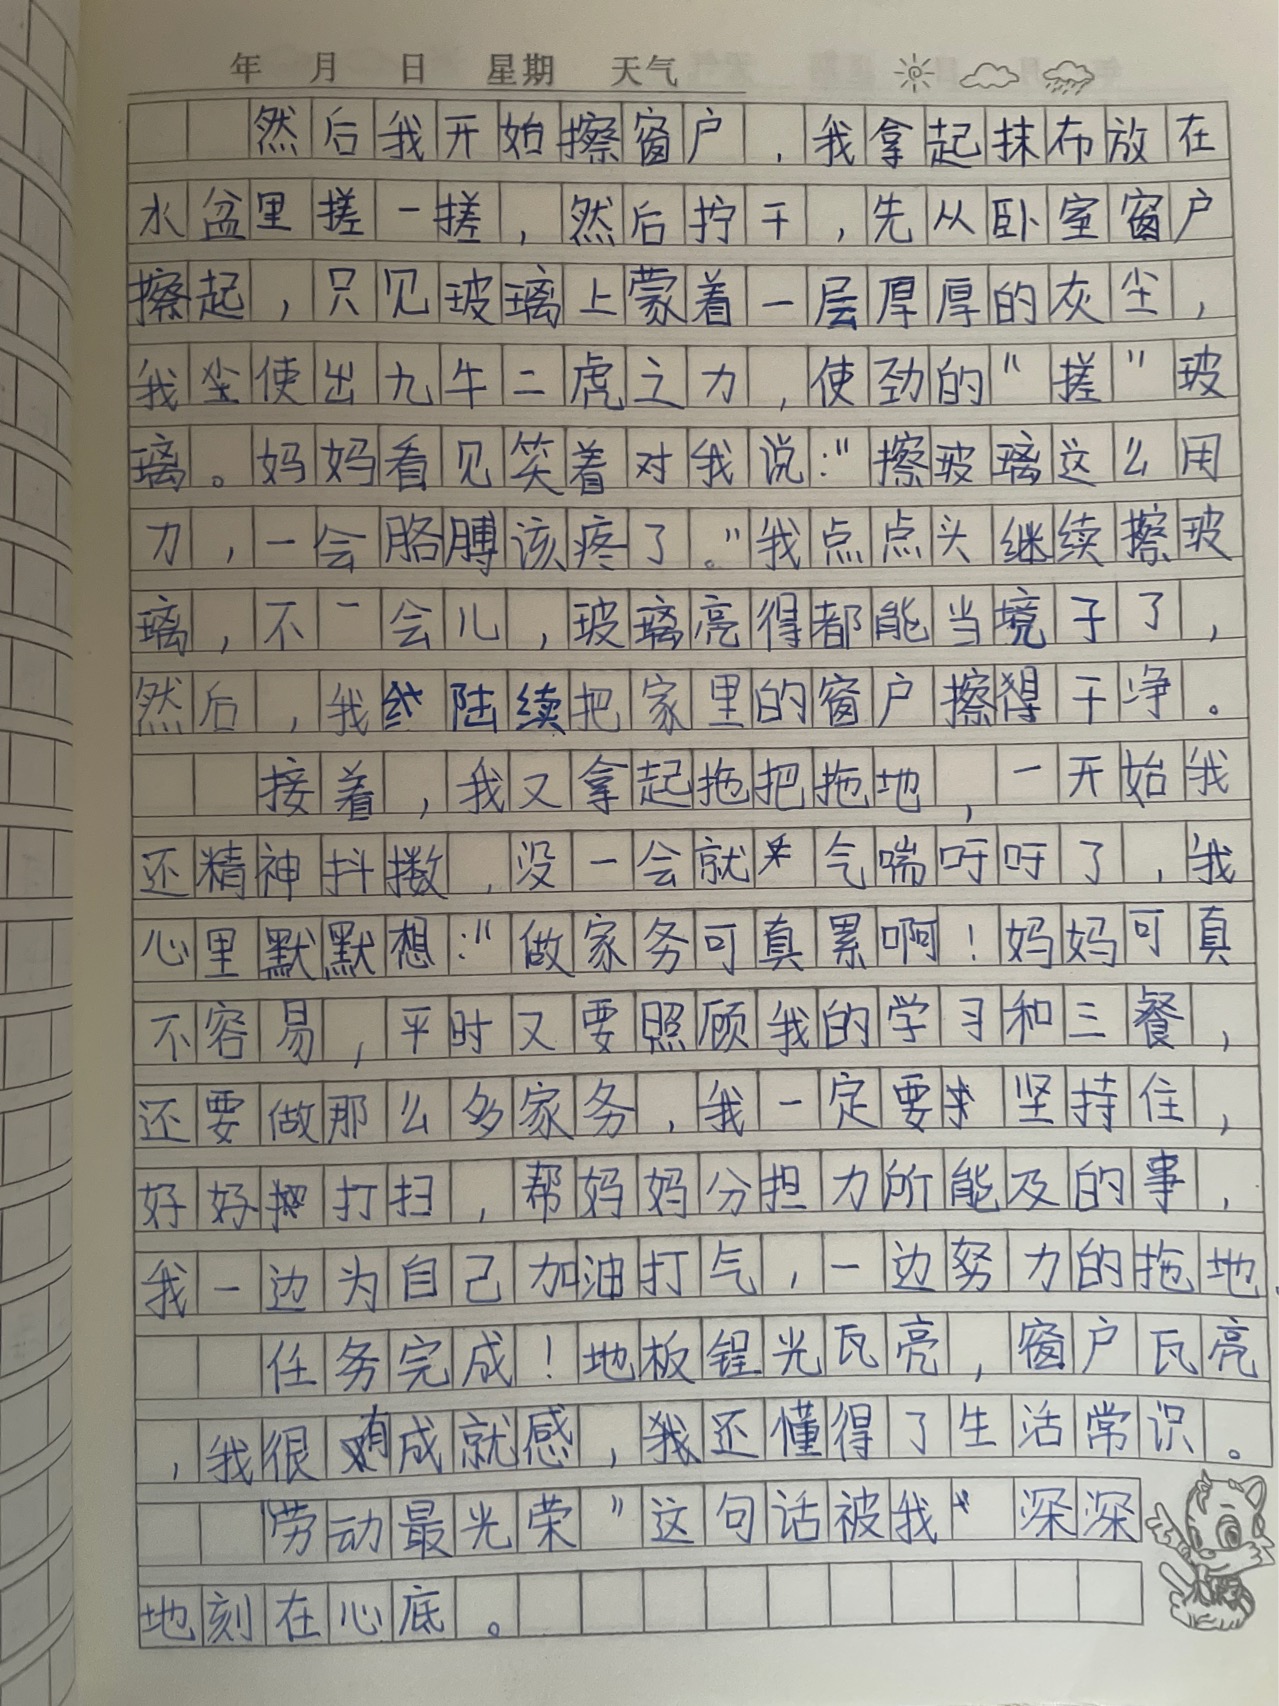 年 月 日 星期 天气
然后我开始擦窗户,我拿起抹布放在
水盆里搓一搓,然后拧干,先从卧室窗户
擦起,只见玻璃上蒙着一层厚厚的灰尘,
我使出九牛二虎之力,使劲的“搓”玻
璃。妈妈看见笑着对我说:“擦玻璃这么用
力,一会胳膊该疼了。”我点点头继续擦玻
璃,不一会儿,玻璃亮得都能当境子了,
然后,我陆续把家里的窗户擦得干净。
接着,我又拿起拖把拖地,一开始我
还精神抖擞,没一会就气喘吁吁了,我
心里默默想:“做家务可真累啊!妈妈可真
不容易,平时又要照顾我的学习和三餐,
还要做那么多家务,我一定要坚持住,
好好打扫,帮妈妈分担力所能及的事,
我一边为自己加油打气,一边努力的拖地.
任务完成!地板锃光瓦亮,窗户瓦亮
,我很有成就感,我还懂得了生活常识。
劳动最光荣”这句话被我深深
地刻在心底。